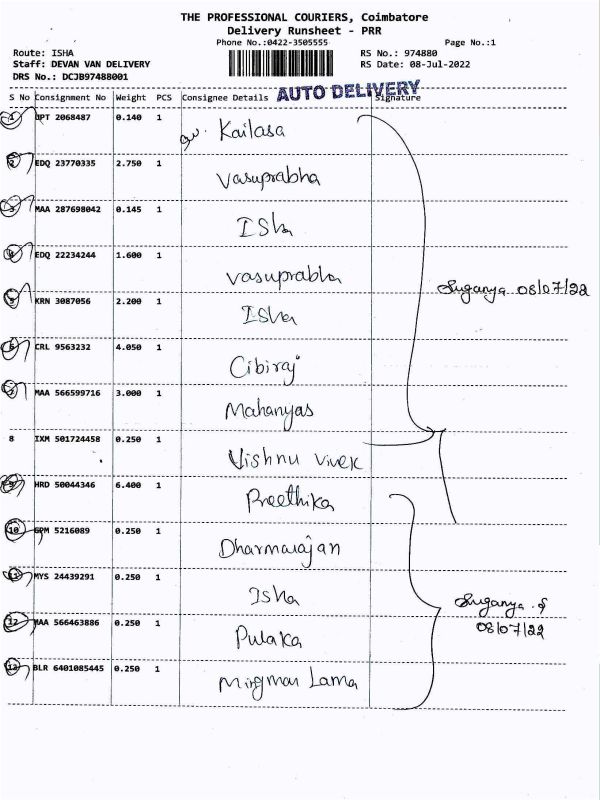 THE PROFESSIONAL COURIERS, Coimbatore
Delivery Runsheet - PRR
Phone No.:0422-3505555 Page No.:1
Route: ISHA RS No.: 974880
Staff: DEVAN VAN DELIVERY RS Date: 08-Jul-2022
DRS No.: DCJB97488001
AUTO DELIVERY
S No Consignment No Weight PCS Consignee Details Signature
1 2068487 0.140 1 Kailasa
2 EDQ 23770335 2.750 1 Vasuprabha
3 MAA 287698042 0.145 1 Isha
4 EDQ 22234244 1.600 1 Vasuprabha
Suganya 08/07/22
5 KRN 3087056 2.200 1 Isha
6 CRL 9563232 4.050 1 Cibiraj
7 MAA 566599716 3.000 1 Mahanyas
8 IXM 501724458 0.250 1 Vishnu Vivek
9 HRD 50044346 6.400 1 Preethika
10 5216089 0.250 1 Dharmarajan
11 MYS 24439291 0.250 1 Isha
Suganya . S
08/07/22
12 MAA 566463886 0.250 1 Pulaka
13 BLR 6401085445 0.250 1 Mingmar Lama